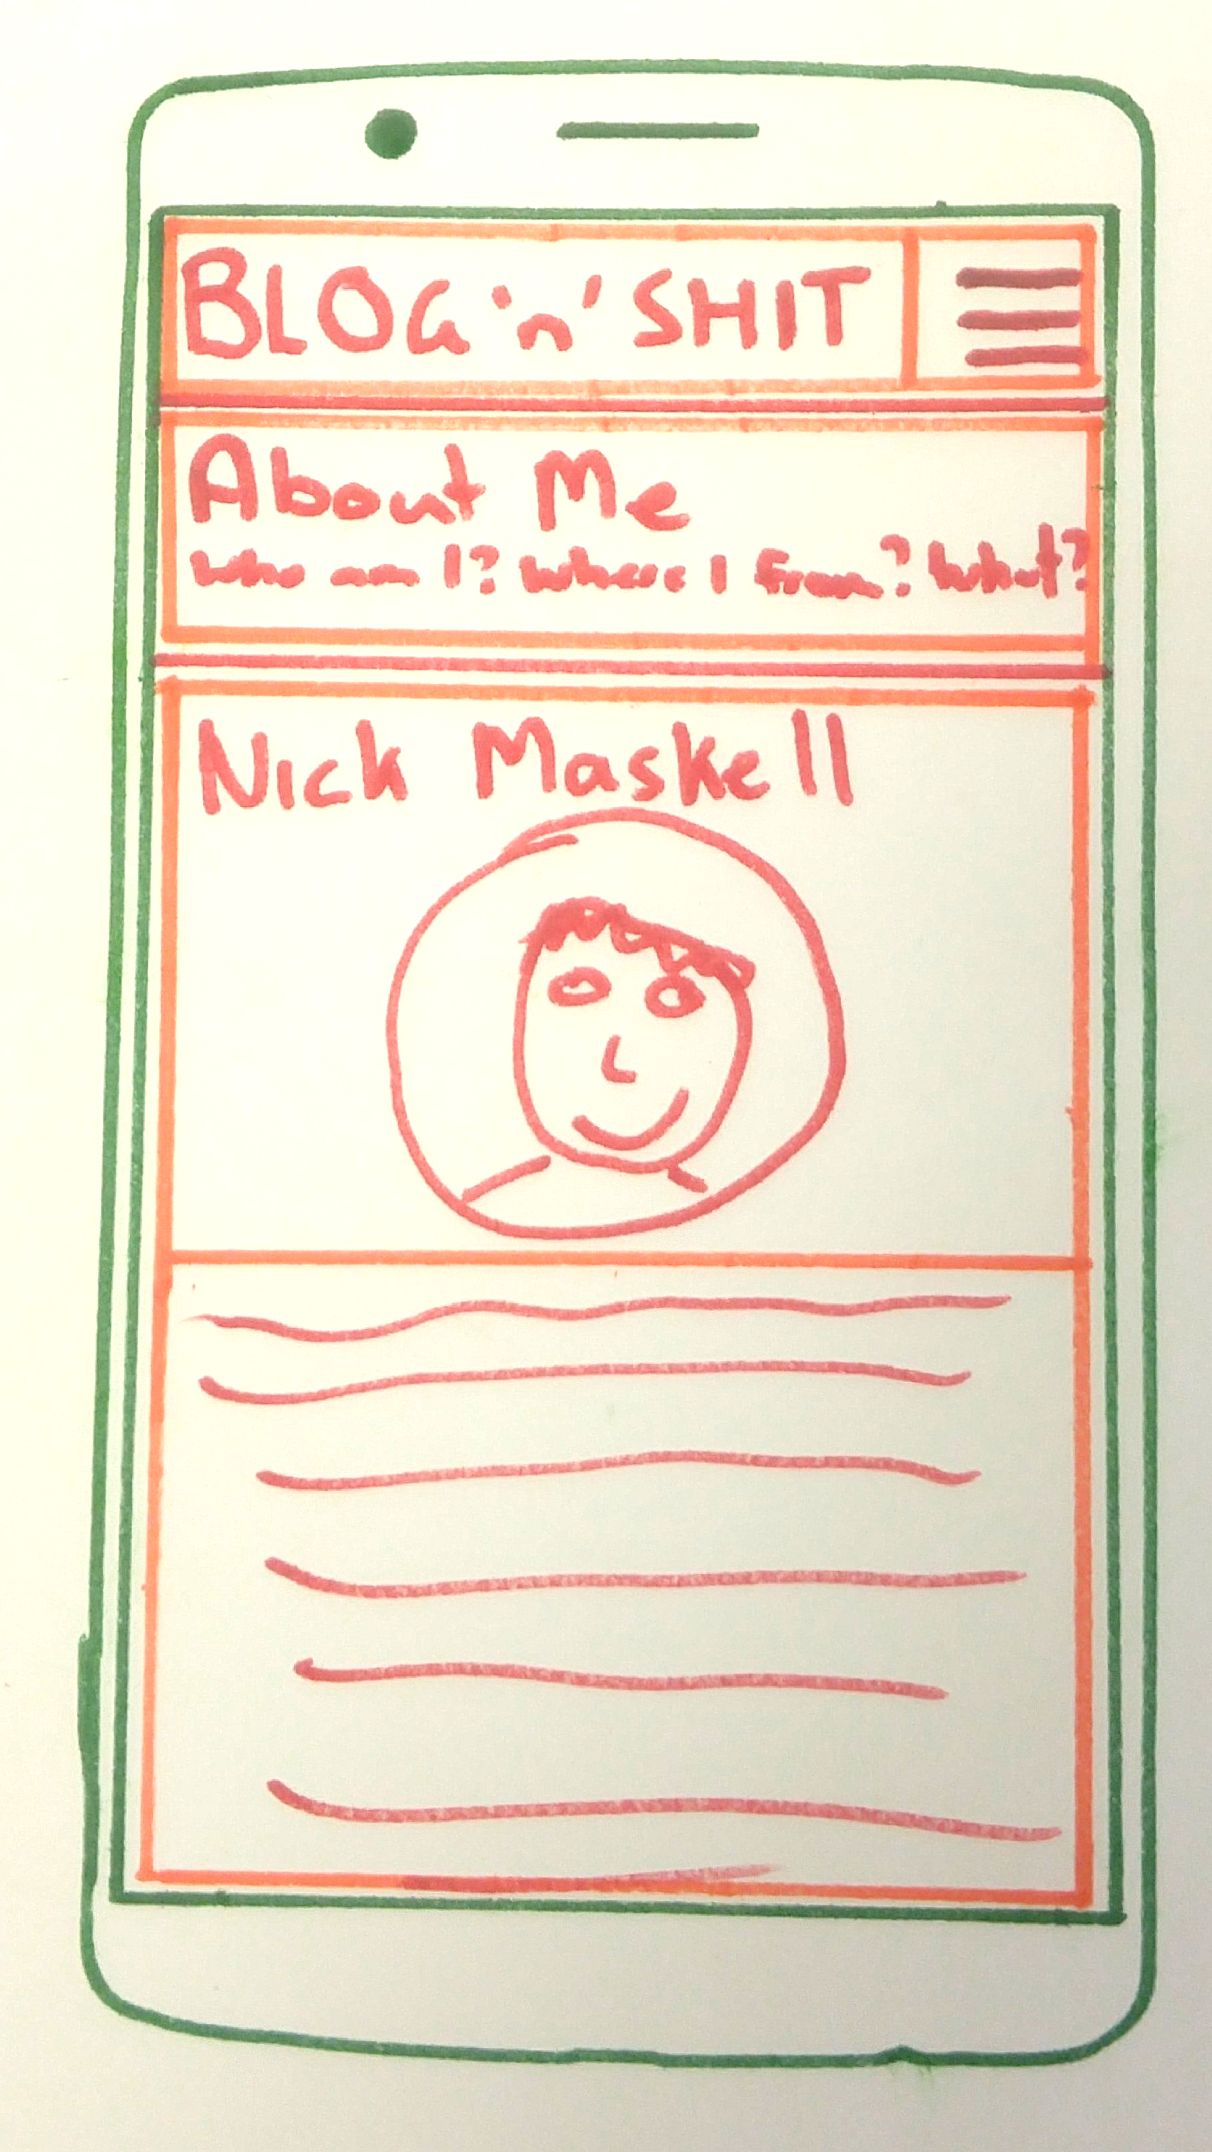 BLOG 'n' SHIT
About Me
who am I? Where I from? What?
Nick Maskell